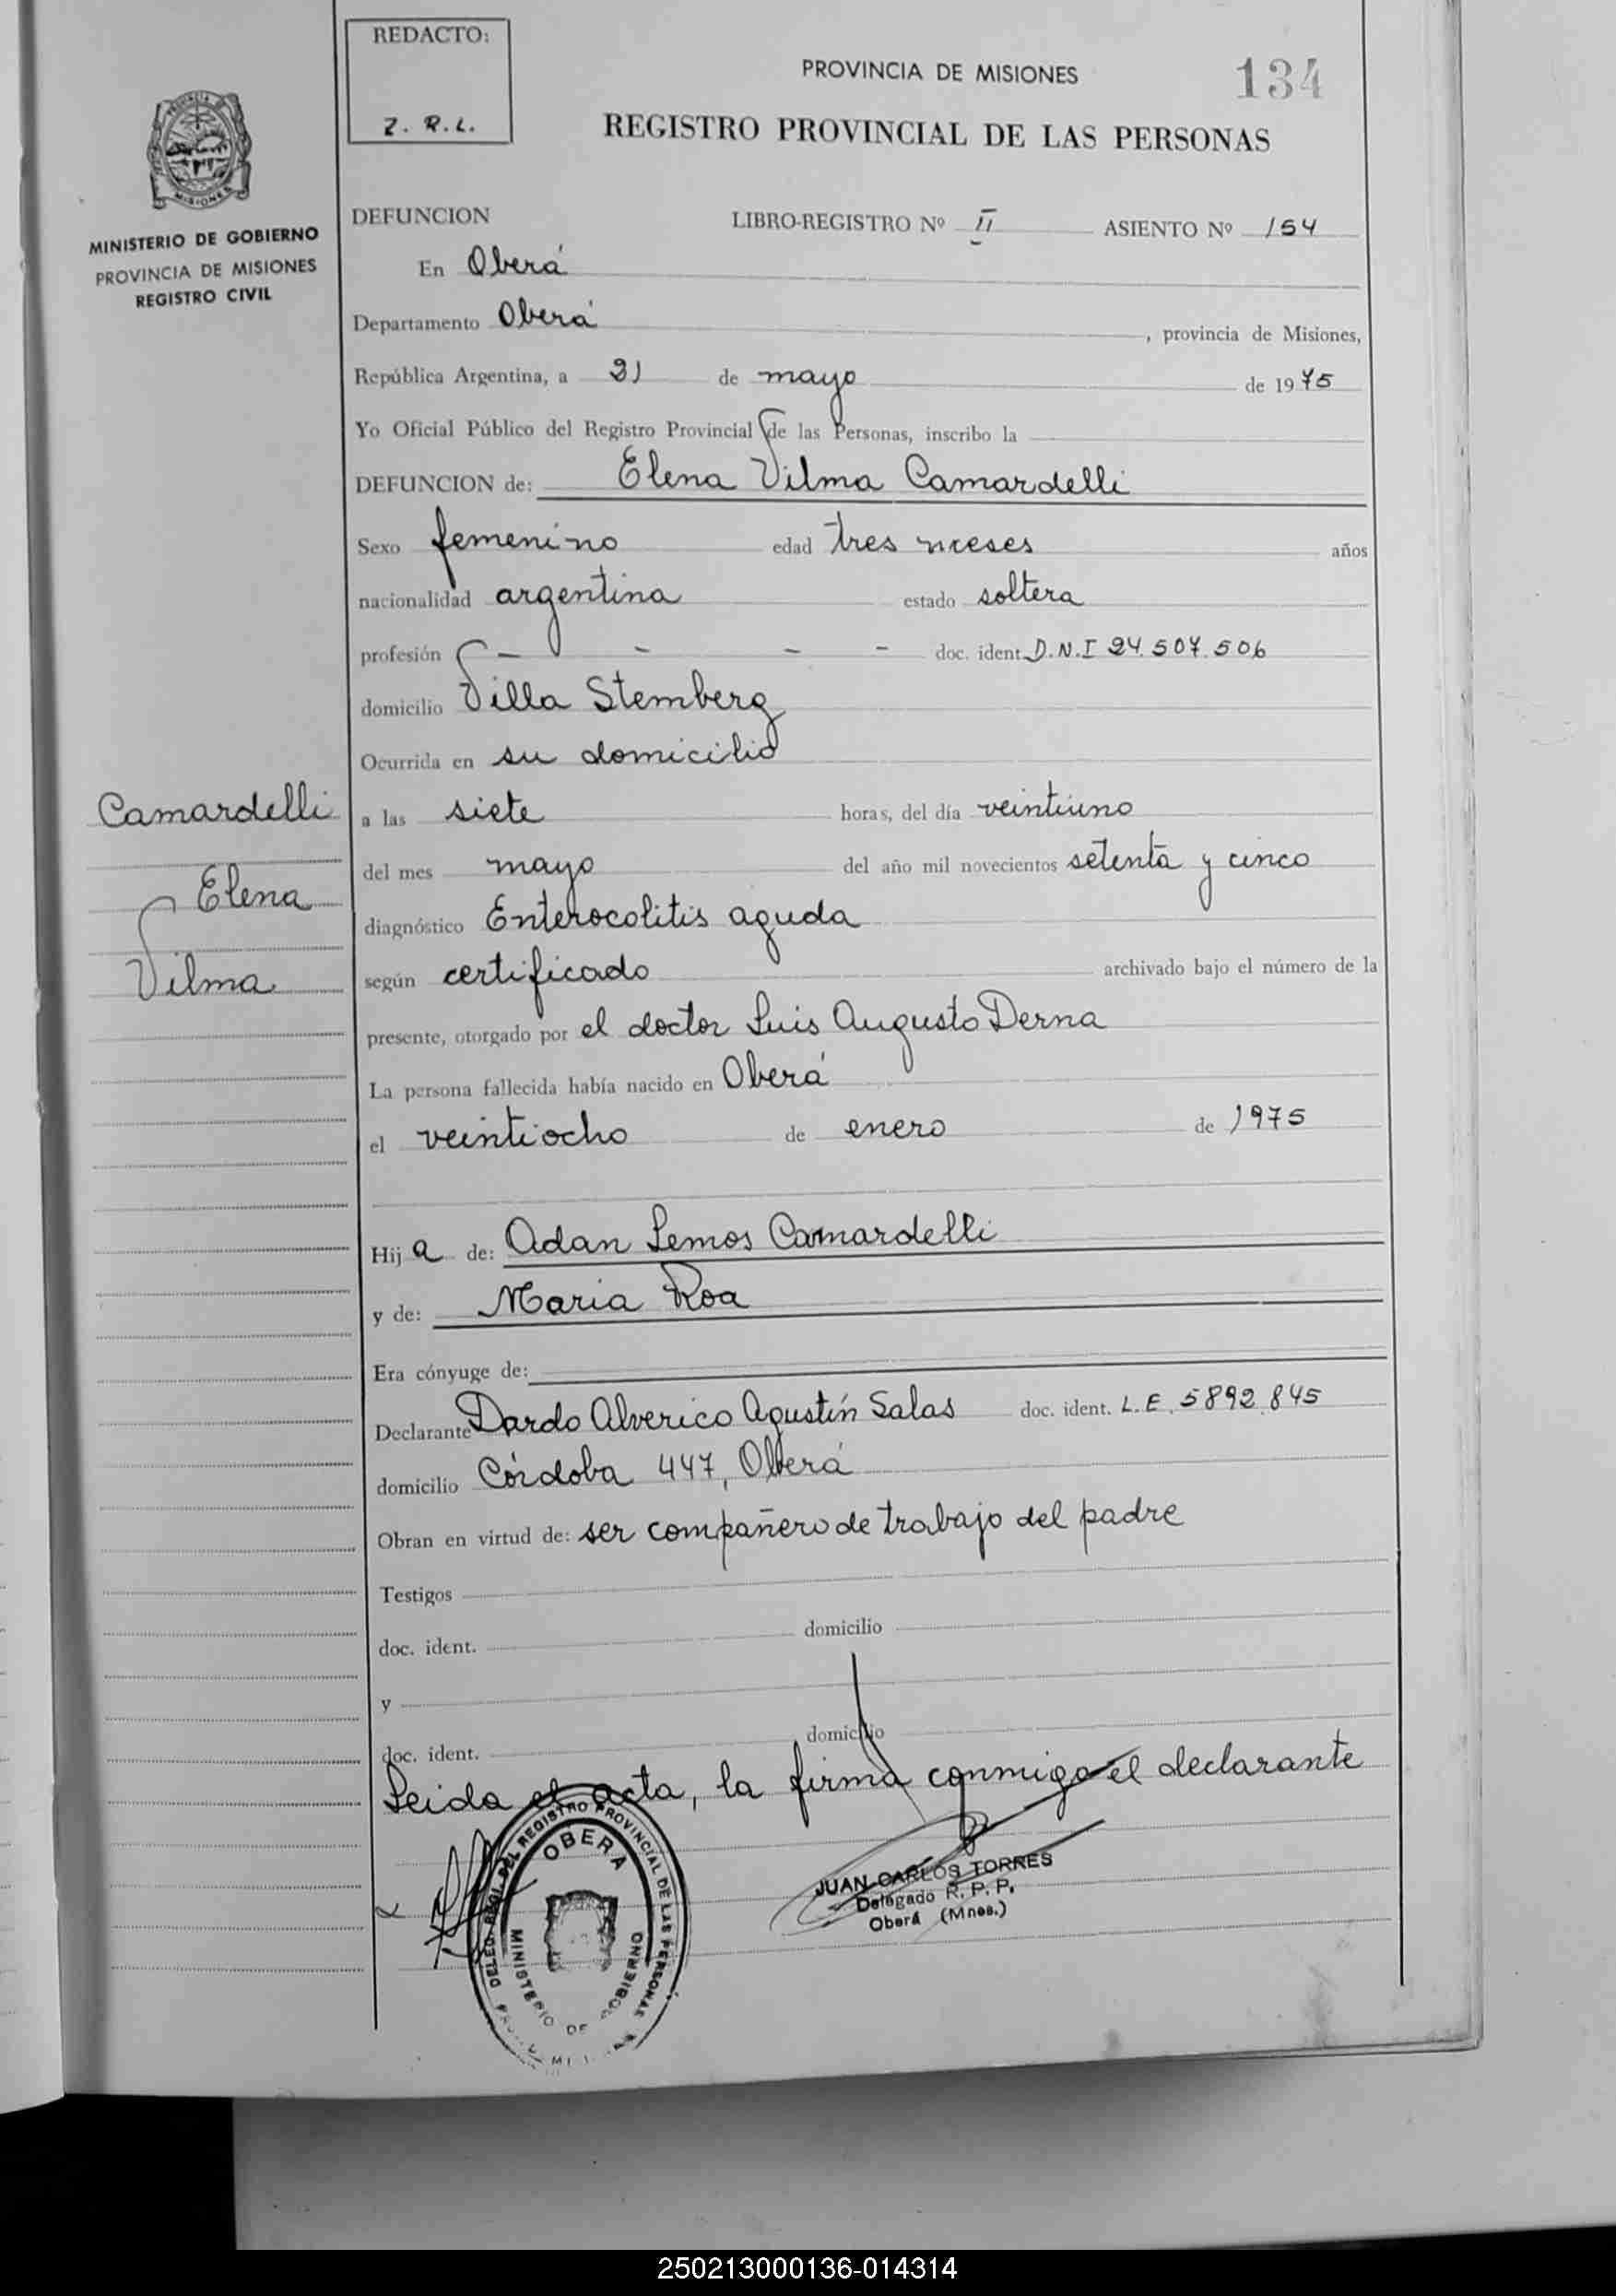 REDACTO:
Z. R. L.
PROVINCIA DE MISIONES
134
REGISTRO PROVINCIAL DE LAS PERSONAS
MINISTERIO DE GOBIERNO
PROVINCIA DE MISIONES
REGISTRO CIVIL
DEFUNCION LIBRO-REGISTRO Nº II ASIENTO Nº 154
En Oberá
Departamento Oberá, provincia de Misiones,
República Argentina, a 21 de mayo de 1975
Yo Oficial Público del Registro Provincial de las Personas, inscribo la
DEFUNCION de: Elena Vilma Camardelli
Sexo femenino edad tres meses años
nacionalidad argentina estado soltera
profesión - - - - doc. ident. D.N.I 24.507.506
domicilio Villa Stemberg
Ocurrida en su domicilio
Camardelli
Elena
Vilma
a las siete horas, del día veintiuno
del mes mayo del año mil novecientos setenta y cinco
diagnóstico Enterocolitis aguda
según certificado archivado bajo el número de la
presente, otorgado por el doctor Luis Augusto Derna
La persona fallecida había nacido en Oberá
el veintiocho de enero de 1975
Hij a de: Adan Lemos Camardelli
y de: Maria Roa
Era cónyuge de:
Declarante Dardo Alverico Agustín Salas doc. ident. L.E. 5892.845
domicilio Córdoba 447, Oberá
Obran en virtud de: ser compañero de trabajo del padre
Testigos
doc. ident. domicilio
y
doc. ident. domicilio
Leida el acta, la firma conmigo el declarante
OBERA
REGISTRO PROVINCIAL DE LAS PERSONAS
MINISTERIO DE GOBIERNO
JUAN CARLOS TORRES
Delegado R. P. P.
Oberá (Mnes.)
250213000136-014314